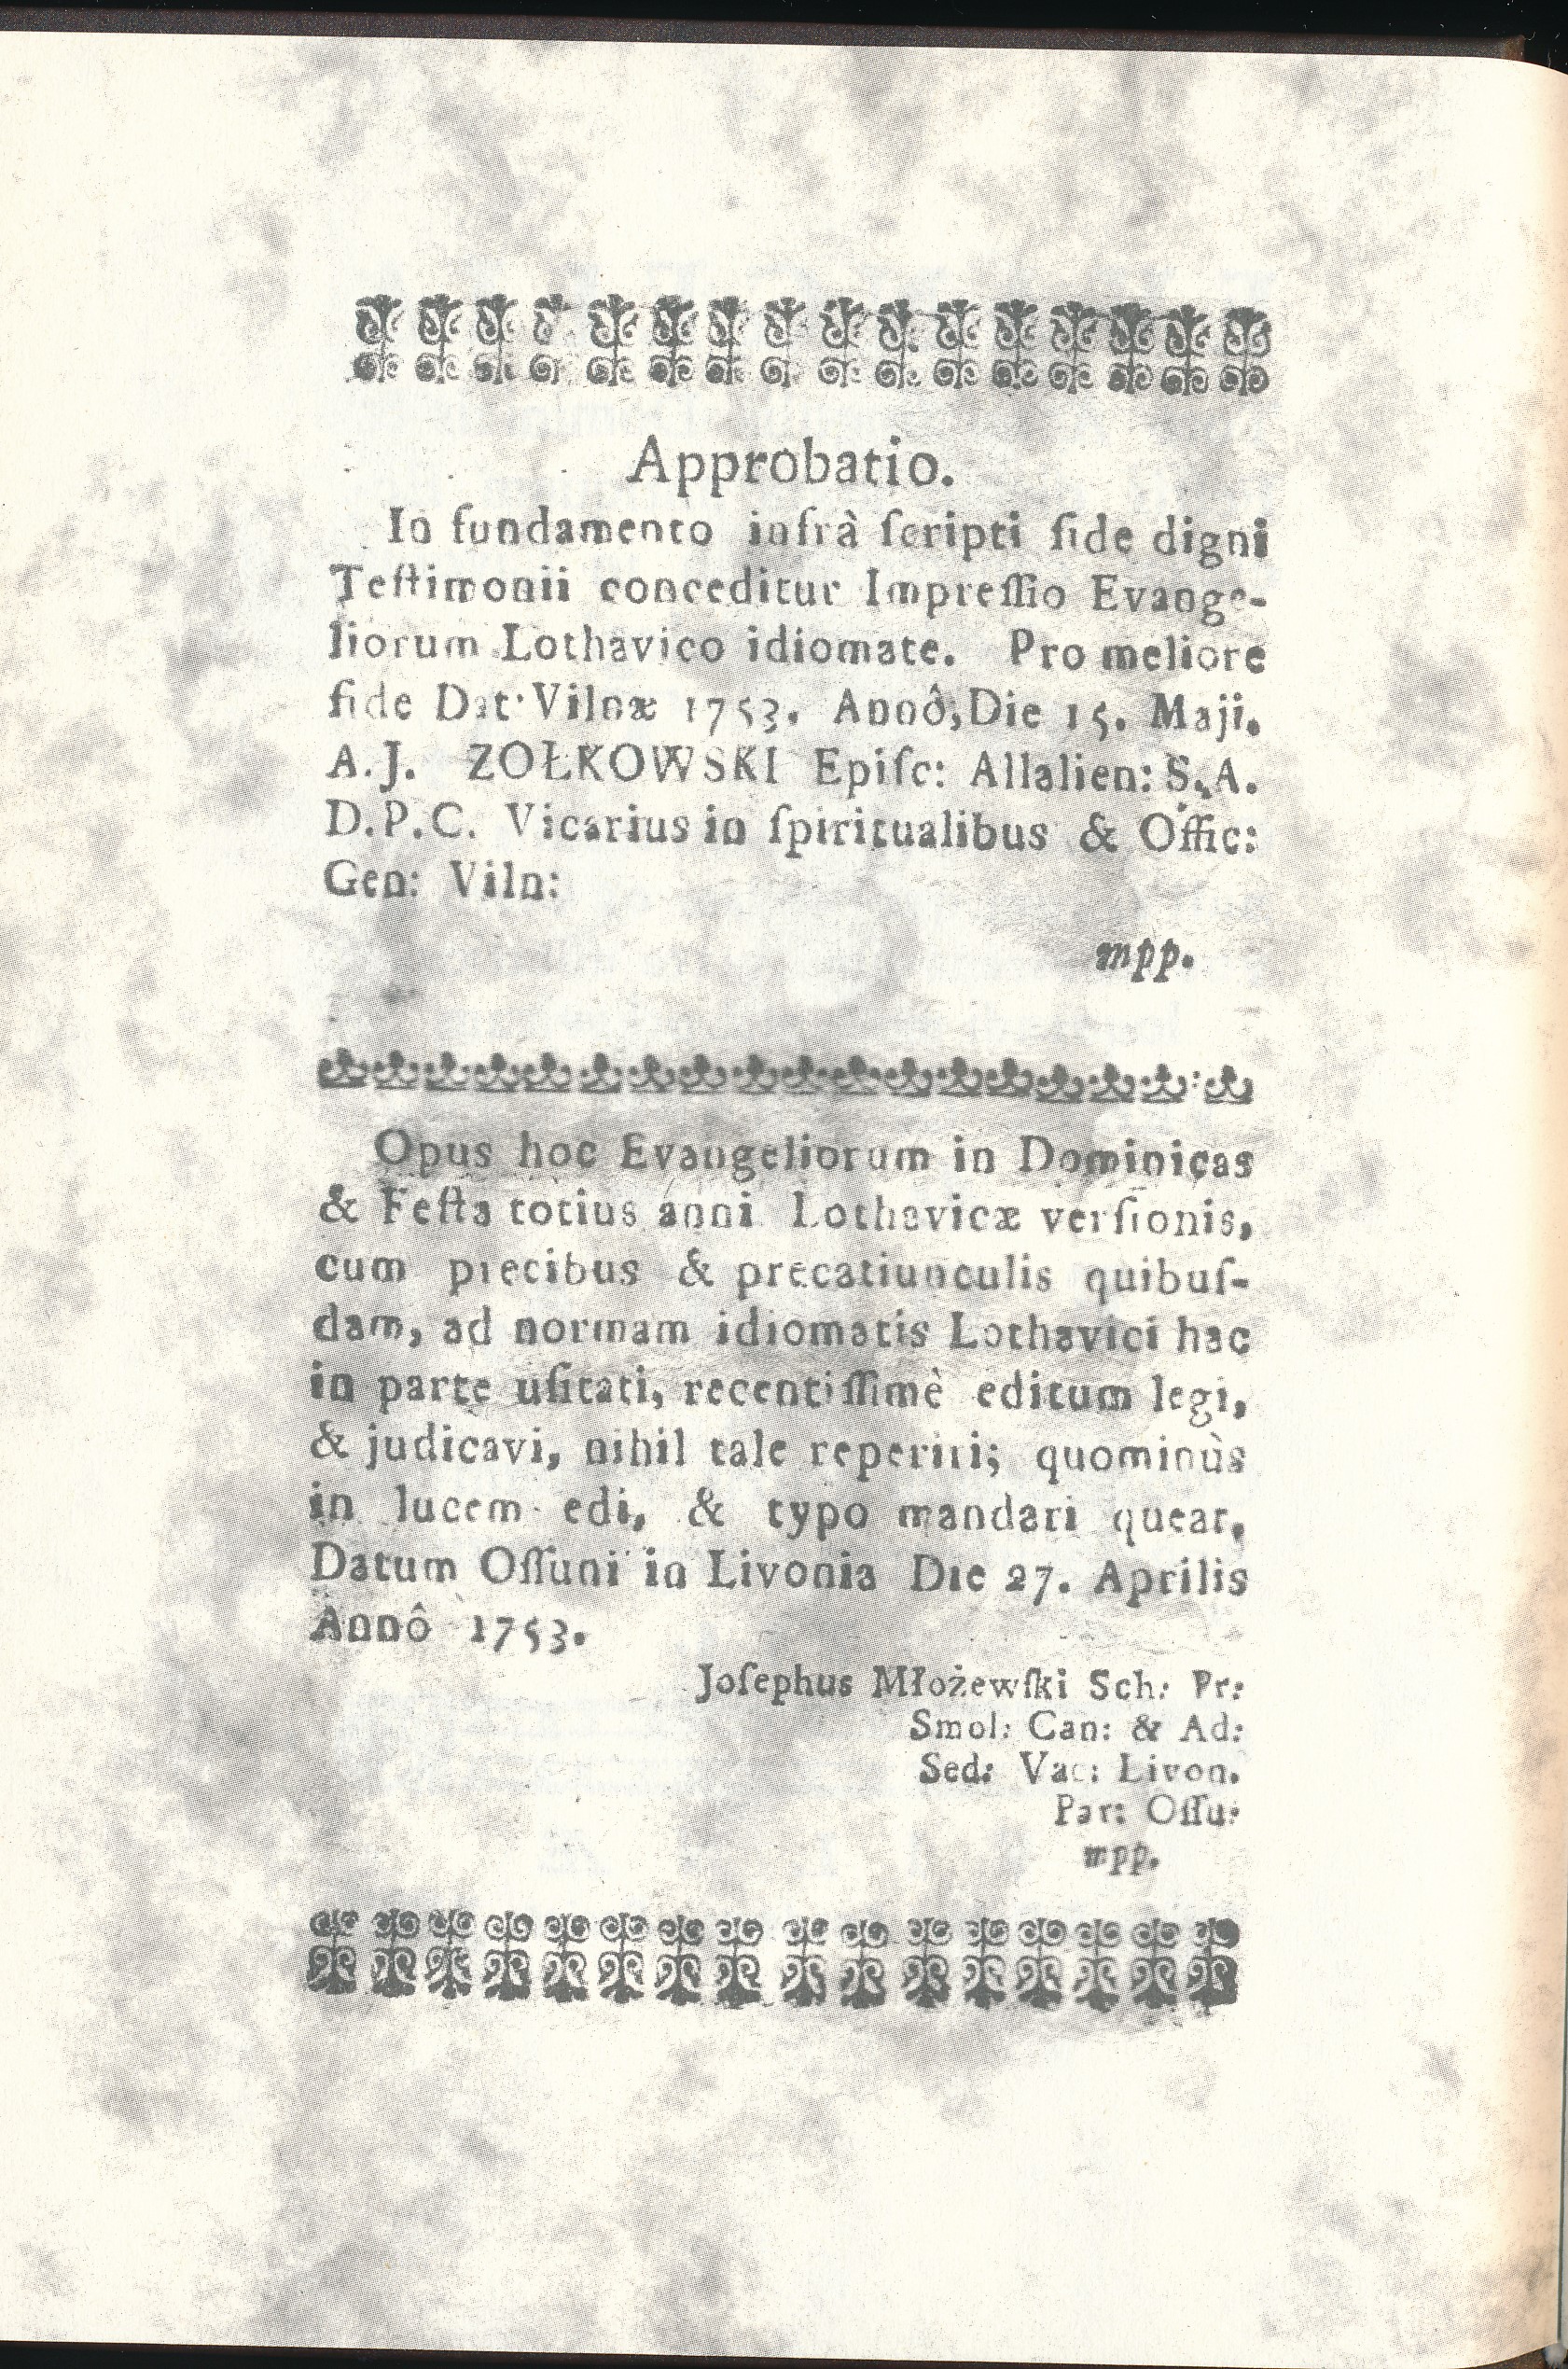 Approbatio.
In fundamento infrà ſcripti fide digni
Teſtimonii conceditur Impreſſio Evange-
liorum Lothavico idiomate. Pro meliore
fide Dat· Vilnæ 1753. Annô, Die 15. Maji.
A.J. ZOŁKOWSKI Epiſc: Allalien: S. A.
D.P.C. Vicarius in ſpiritualibus & Offic:
Gen: Viln:
mpp.
Opus hoc Evangeliorum in Dominicas
& Feſta totius anni Lothavicæ verſionis,
cum precibus & precatiunculis quibuſ-
dam, ad normam idiomatis Lothavici hac
in parte uſitati, recentiſſimè editum legi,
& judicavi, nihil tale reperiri; quominùs
in lucem edi, & typo mandari queat.
Datum Oſſuni in Livonia Die 27. Aprilis
Annô 1753.
Joſephus Młożewſki Sch: Pr:
Smol: Can: & Ad:
Sed: Vac: Livon.
Par: Oſſu:
mpp.